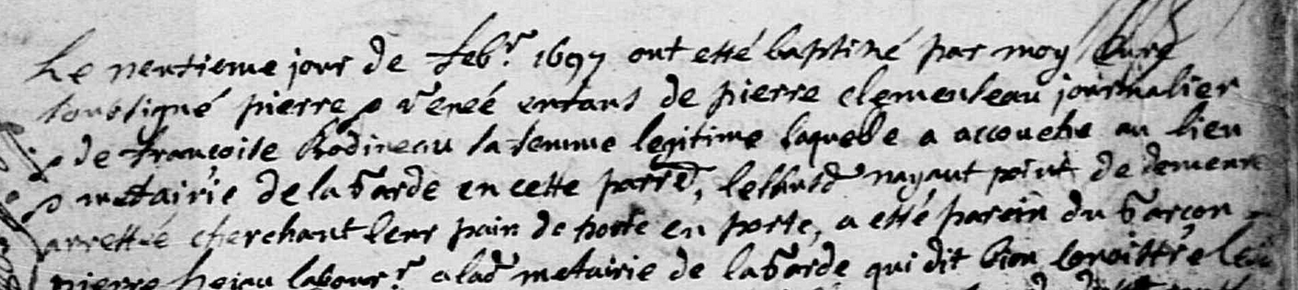 Le neufieme jour de febr 1697 ont etté baptisé par moy Curé
soussigné pierre & renée enfans de pierre clemenseau journalier
& de francoise Rodineau sa femme legitime laquelle a accouché au lieu
& metairie de la Garde en cette parr, lesusd nayant point de demeure
arrettée cherchant leur pain de porte en porte, a etté parein du Garcon
pierre labour a lad metairie de la Garde qui dit bien conoittre